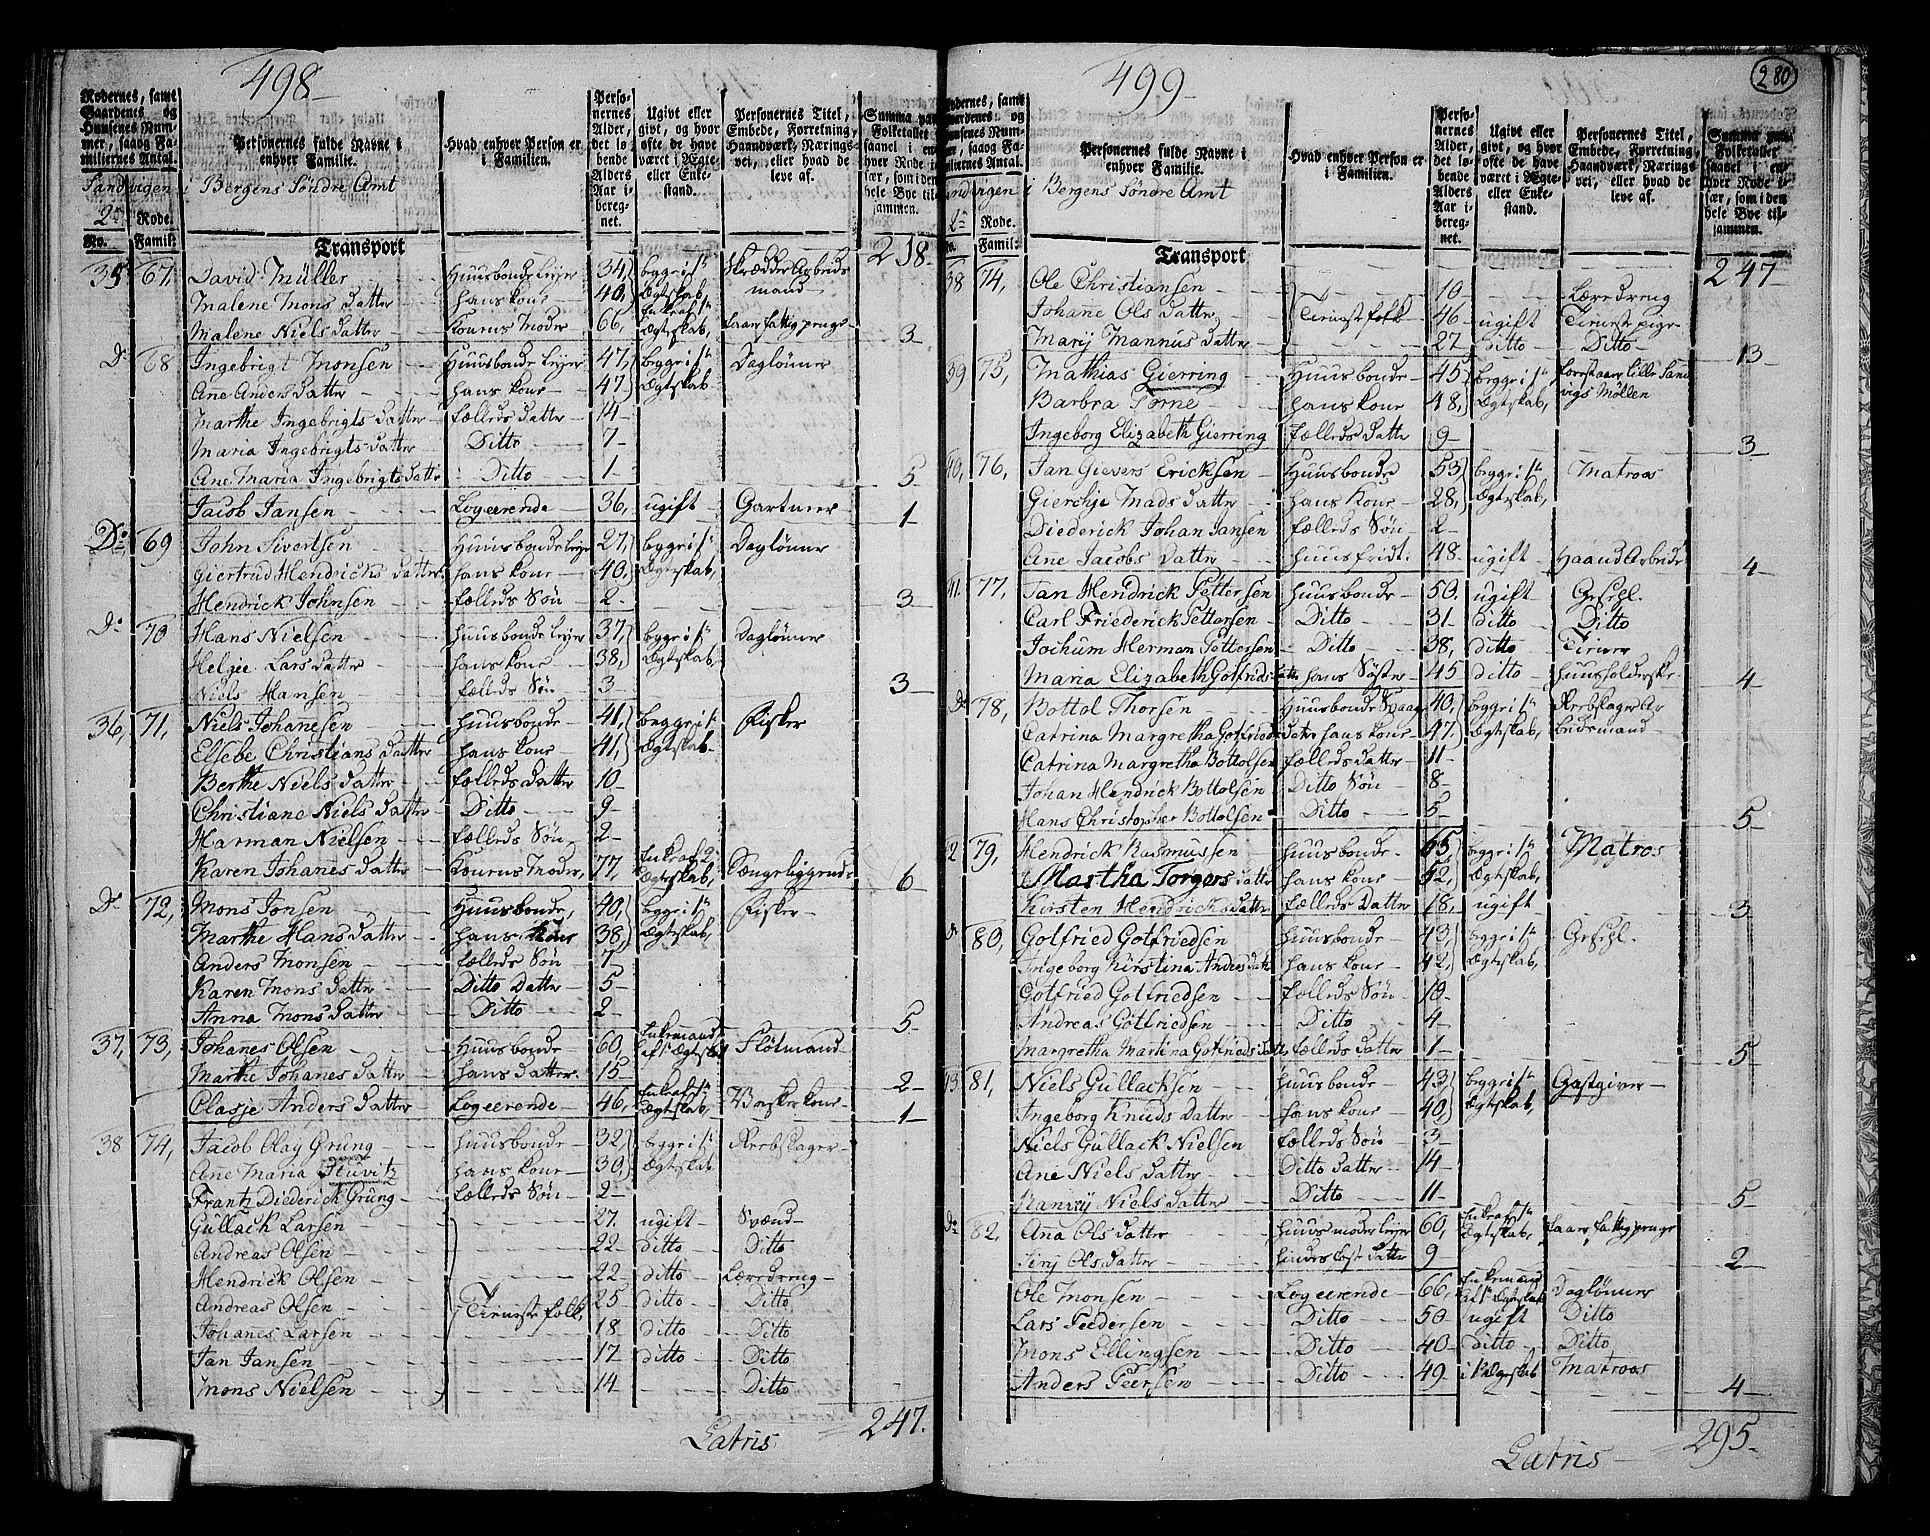 498
Nodernes, samt Gaardenes og Huusenes Nummer, saaog Familiernes Antal.
Personernes fulde Navne i enhver Familie.
Hvad enhver Person er i Familien.
Personernes Alder, det løbende Alders Aar iberegnet.
Ugivt eller givt, og hvor ofte de have været i Ægte- eller Enkestand.
Personernes Titel, Embede, Forretning, Haandværk, Næringsvei, eller hvad de leve af.
Sandvigen i Bergens Søndre Amt
2de Rode.
No. Famil:
Transport 218.
35 67, David Müller Huusbonde Lejer 34, begge i 1te Skrædder Arbeids
Malene Mons datter hans kone 40, Ægteskab, mand
Malene Niels datter Konens Moder 66, Enke af 1te Ægteskab, faaer fattig penge 3
Do 68 Ingebrigt Monsen Huusbonde Lejer 47, begge i 1te Dagløner
Ane Anders datter hans kone 47, Ægteskab
Marthe Ingebrigts datter fælleds datter 14
Maria Ingebrigts datter Ditto 7
Ane Maria Ingebrigts datter Ditto 1 5
Jacob Jansen Logerende 36, ugift Gartner 1
Do 69 John Sivertsen Huusbonde Lejer 27, begge i 1te Dagløner
Giertrud Hendrichs datter hans kone 40, Ægteskab,
Hendrick Johnsen fælleds Søn 2 3
Do 70 Hans Nielsen Huusbonde Lejer 37, begge i 1te Dagløner
Helgie Lars datter hans kone 38, Ægteskab,
Niels Hansen fælleds Søn 3 3
36, 71, Niels Johanesen Huusbonde 41, begge i 1te Fisker
Elsebe Christians datter hans kone 41, Ægteskab
Berthe Niels datter fælleds datter 10
Christiane Niels datter Ditto 9
Harman Nielsen fælleds Søn 2
Karen Johanes datter Konens Moder, 77, Enke af 2 Ægteskab, Sængeliggende 6
Do 72, Mons Jonsen Huusbonde, 40, begge i 1te Fisker
Marthe Hans datter hans kone 38, Ægteskab,
Anders Monsen fælleds Søn 7
Karen Mons datter Ditto datter 5
Anna Mons datter Ditto 2 5
37, 73, Johanes Olsen Huusbonde 60 Enkemand af 1te Ægteskab Flotmand
Marthe Johanes datter hans datter 15 2
Clasje Anders datter Logerende 46, Enke af 1te Ægteskab, Vaskerkone 1
38 74, Jacob Olay Grung Huusbonde 32, begge i 1te Reebslager
Ane Maria Stuvitz hans kone 30, Ægteskab
Frantz Diederick Grung fælleds Søn 2
Gullack Larsen 27. ugift Svend
Andreas Olsen 22 ditto Ditto
Hendrick Olsen 22 ditto Læredreng
Andreas Olsen Tieneste folk 25 ditto Ditto
Johanes Larsen 18 ditto Ditto
Jan Jansen 17 ditto Ditto
Mons Nielsen 14 Ditto
Latris 247.
499
280
Personernes fulde Navne i enhver Familie.
Hvad enhver Person er i Familien.
Personernes Alder, det løbende Alders Aar iberegnet.
Ugivt eller givt, og hvor ofte de have været i Ægte- eller Enkestand.
Personernes Titel, Embede, Forretning, Haandværk, Næringsvei, eller hvad de leve af.
Summa paa Folketallet saavel i enhver Rode især, som i den hele Bye tilsammen.
i Bergens Søndre Amt
2de Rode.
Famil:
Transport 247
38 74, Ole Christiansen 10 Læredreng
Johane Ols datter Tieneste folk 46 ugift Tieneste pige
Marj Mannus datter 27 ditto Ditto 13
39 75, Mathias Gierring Huusbonde 45 begge i 1te forestaaer lille Sand
Barbra Torne hans kone 48, Ægteskab, vigs Møllen
Ingeborg Elizabeth Gierring fælleds datter 9 3
40, 76, Jan Gievers Ericksen Huusbonde 53, begge i 1te Matroos
Gierchje Mads datter hans kone 28, Ægteskab,
Diederick Johan Jansen fælleds Søn 2
Ane Jacobs datter 48 ugift Haand Arbeide 4
41. 77, Jan Hendrick Pettersen Huusbonde 50. ugift
Carl Friederick Pettersen Ditto 31 ditto Ditto
Jochum Herman Pettersen Ditto 38, ditto Tiener
Maria Elizabeth Gotfrids datter hans Søster 45 ditto huusholderske 4
Do 78, Bottol Thorsen Huusbonde Svaager 40, begge i 1te Reebslager Ar
Catrina Margretha Gotfrieds datter hans kone 47. Ægteskab, beidsmand
Catrina Margretha Bottolsen fælleds datter 11
Johan Hendrick Bottolsen Ditto Søn 8
Hans Christopher Bottolsen Ditto 5 5
42 79, Hendrick Rasmussen Huusbonde 65, begge i 1te Matros
Martha Torgers datter hans kone 52, Ægteskab,
Kirsten Hendricks datter fælleds datter 18, ugift 3
Do 80, Gotfried Gotfriedsen Huusbonde 43, begge i 1te
Ingeborg Kirstina Andreas datter hans kone 42, Ægteskab,
Gotfried Gotfriedsen fælleds Søn 10
Andreas Gotfriedsen Ditto 4
Margretha Martina Gotfrieds datter fælleds datter 1 5
43. 81, Niels Gullachsen Huusbonde 43, begge i 1te Gastgiver
Ingeborg Knuds datter hans kone 40, Ægteskab,
Niels Gullack Nielsen fælleds Søn 3
Ane Niels datter Ditto datter 14
Niels datter Ditto 11 5
Do 82, Ana Ols datter Huusmoder Lejer 60, Enke af 1te Ægteskab, faaer fattig penge
Ols datter datter 9 2
Ole Monsen Logerende 66, Enkemand af 1te Ægteskab Dagløner
Lars Peedersen Ditto 50 ugift Ditto
Mons Ellingsen Ditto 40 ditto Ditto
Anders Peersen Ditto 49 i Ægteskab Matroos 4
Latris 295